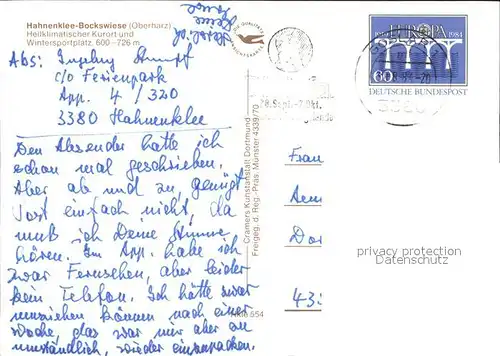 Hahnenklee-Bockswiese (Oberharz)
Heilklimatischer Kurort und
Wintersportplatz, 600–726 m
Abs: Stumpf
c/o Ferienpark
App. 4 / 320
3380 Hahnenklee
Den Absender hatte ich
schon mal geschrieben.
Aber ab und zu genügt
Wort einfach nicht, da
muß ich Deine Stimme
hören. Im App. habe ich
zwar Fernsehen, aber leider
kein Telefon. Ich hätte zwar
umziehen können nach einer
Woche, das war mir aber zu
umständlich, wieder einzupacken.
Herzlich
Deine
Cramers Kunstanstalt Dortmund
Freigeg. d. Reg.-Präs. Münster 4339/70
554
28. Sept.-7. Okt.
GOSLAR
EUROPA
1984
60
DEUTSCHE BUNDESPOST
Frau
Dor
43
privacy protection
Datenschutz